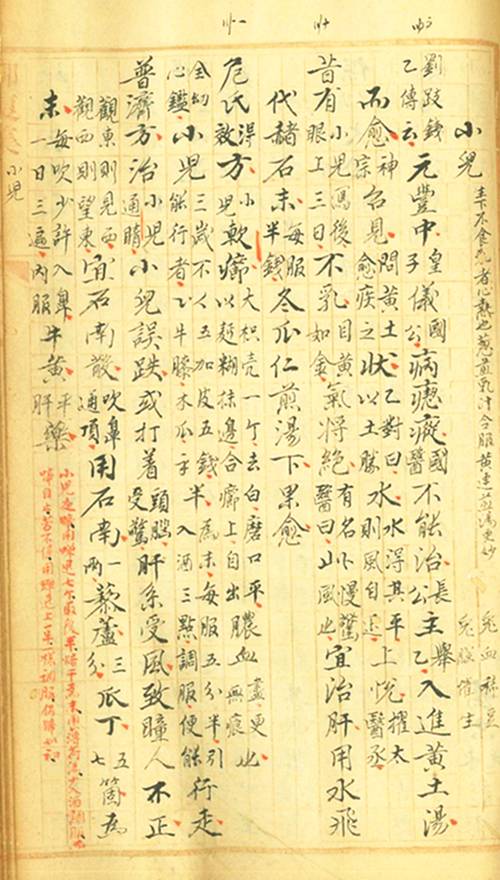 小兒
生下不食乳者心熱也葱煎乳汁令服黃連湯更妙
兔血稀痘
兔腦催生
劉跂錢乙傳云元豐中皇子儀國公病瘛瘲國醫不能治長公主舉乙入進黃土湯
而愈神宗召見問黃土愈疾之狀乙對曰以土勝水水得其平則風自退上悅擢太醫丞
昔有小兒瀉後眼上三日不乳目黃如金氣將絕醫曰有名此慢驚風也宜治肝用水飛
代赭石末每服半錢冬瓜仁煎湯下果愈
危氏得效方小兒軟癤大枳壳一个去白磨口平以麪糊抹邊合癤上自出膿血盡更無痕也
全幼心鑑小兒三歲不能行者五加皮五錢牛膝木瓜半為末每服五分入酒三點調服便能行走
普濟方治小兒通睛小兒誤跌或打着頭腦受驚肝系受風致瞳人不正
觀東則見西觀西則望東宜石南散吹鼻通頂用石南一兩藜蘆三分瓜丁五七箇為
末每吹少許入鼻一日三遍內服牛黃平肝藥
小兒